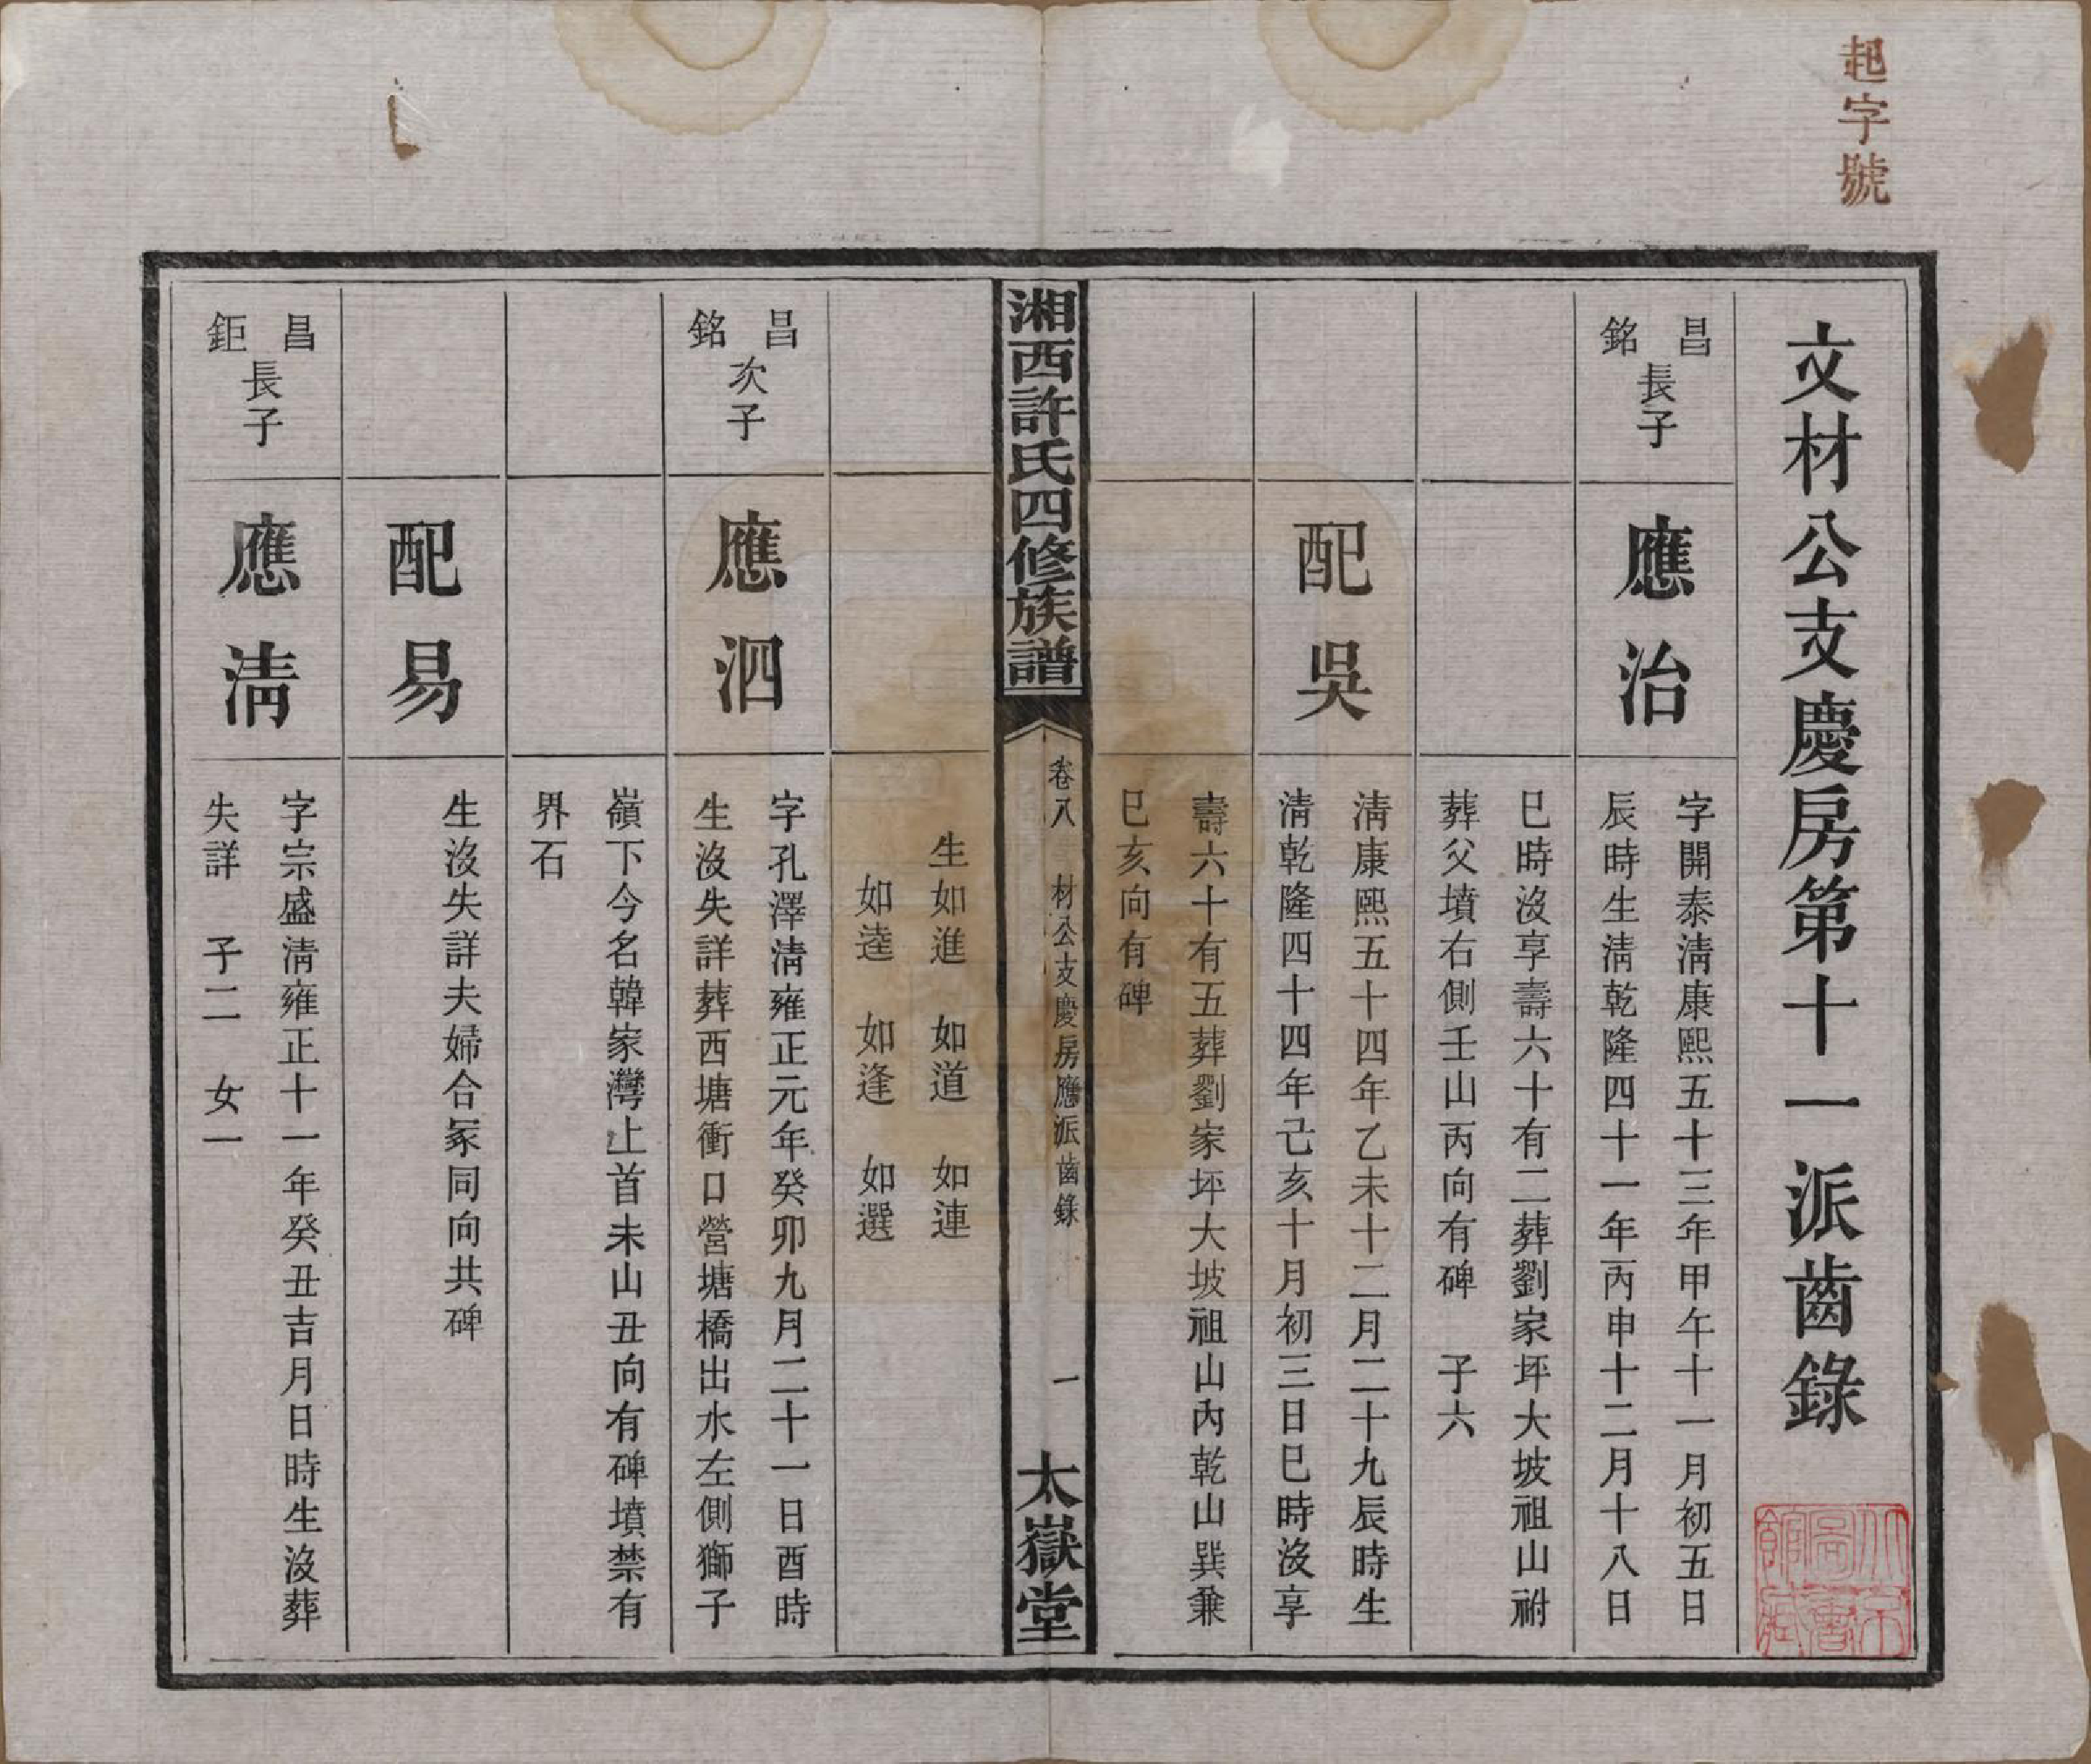 起字號
文材公支慶房第十一派齒錄
昌銘長子
應治
字開泰淸康熙五十三年甲午十一月初五日
辰時生淸乾隆四十一年丙申十二月十八日
巳時沒享壽六十有二葬劉家坪大坡祖山祔
葬父墳右側壬山丙向有碑 子六
配吳
淸康熙五十四年乙未十二月二十九辰時生
淸乾隆四十四年己亥十月初三日巳時沒享
壽六十有五葬劉家坪大坡祖山內乾山巽兼
巳亥向有碑
湘西許氏四修族譜
卷八 材公支慶房應派齒錄
一
太嶽堂
生如進 如道 如連
如逵 如逢 如選
昌銘次子
應泗
字孔澤淸雍正元年癸卯九月二十一日酉時
生沒失詳葬西塘衝口營塘橋出水左側獅子
嶺下今名韓家灣上首未山丑向有碑墳禁有
界石
配易
生沒失詳夫婦合冢同向共碑
昌鉅長子
應淸
字宗盛淸雍正十一年癸丑吉月日時生沒葬
失詳 子二 女一